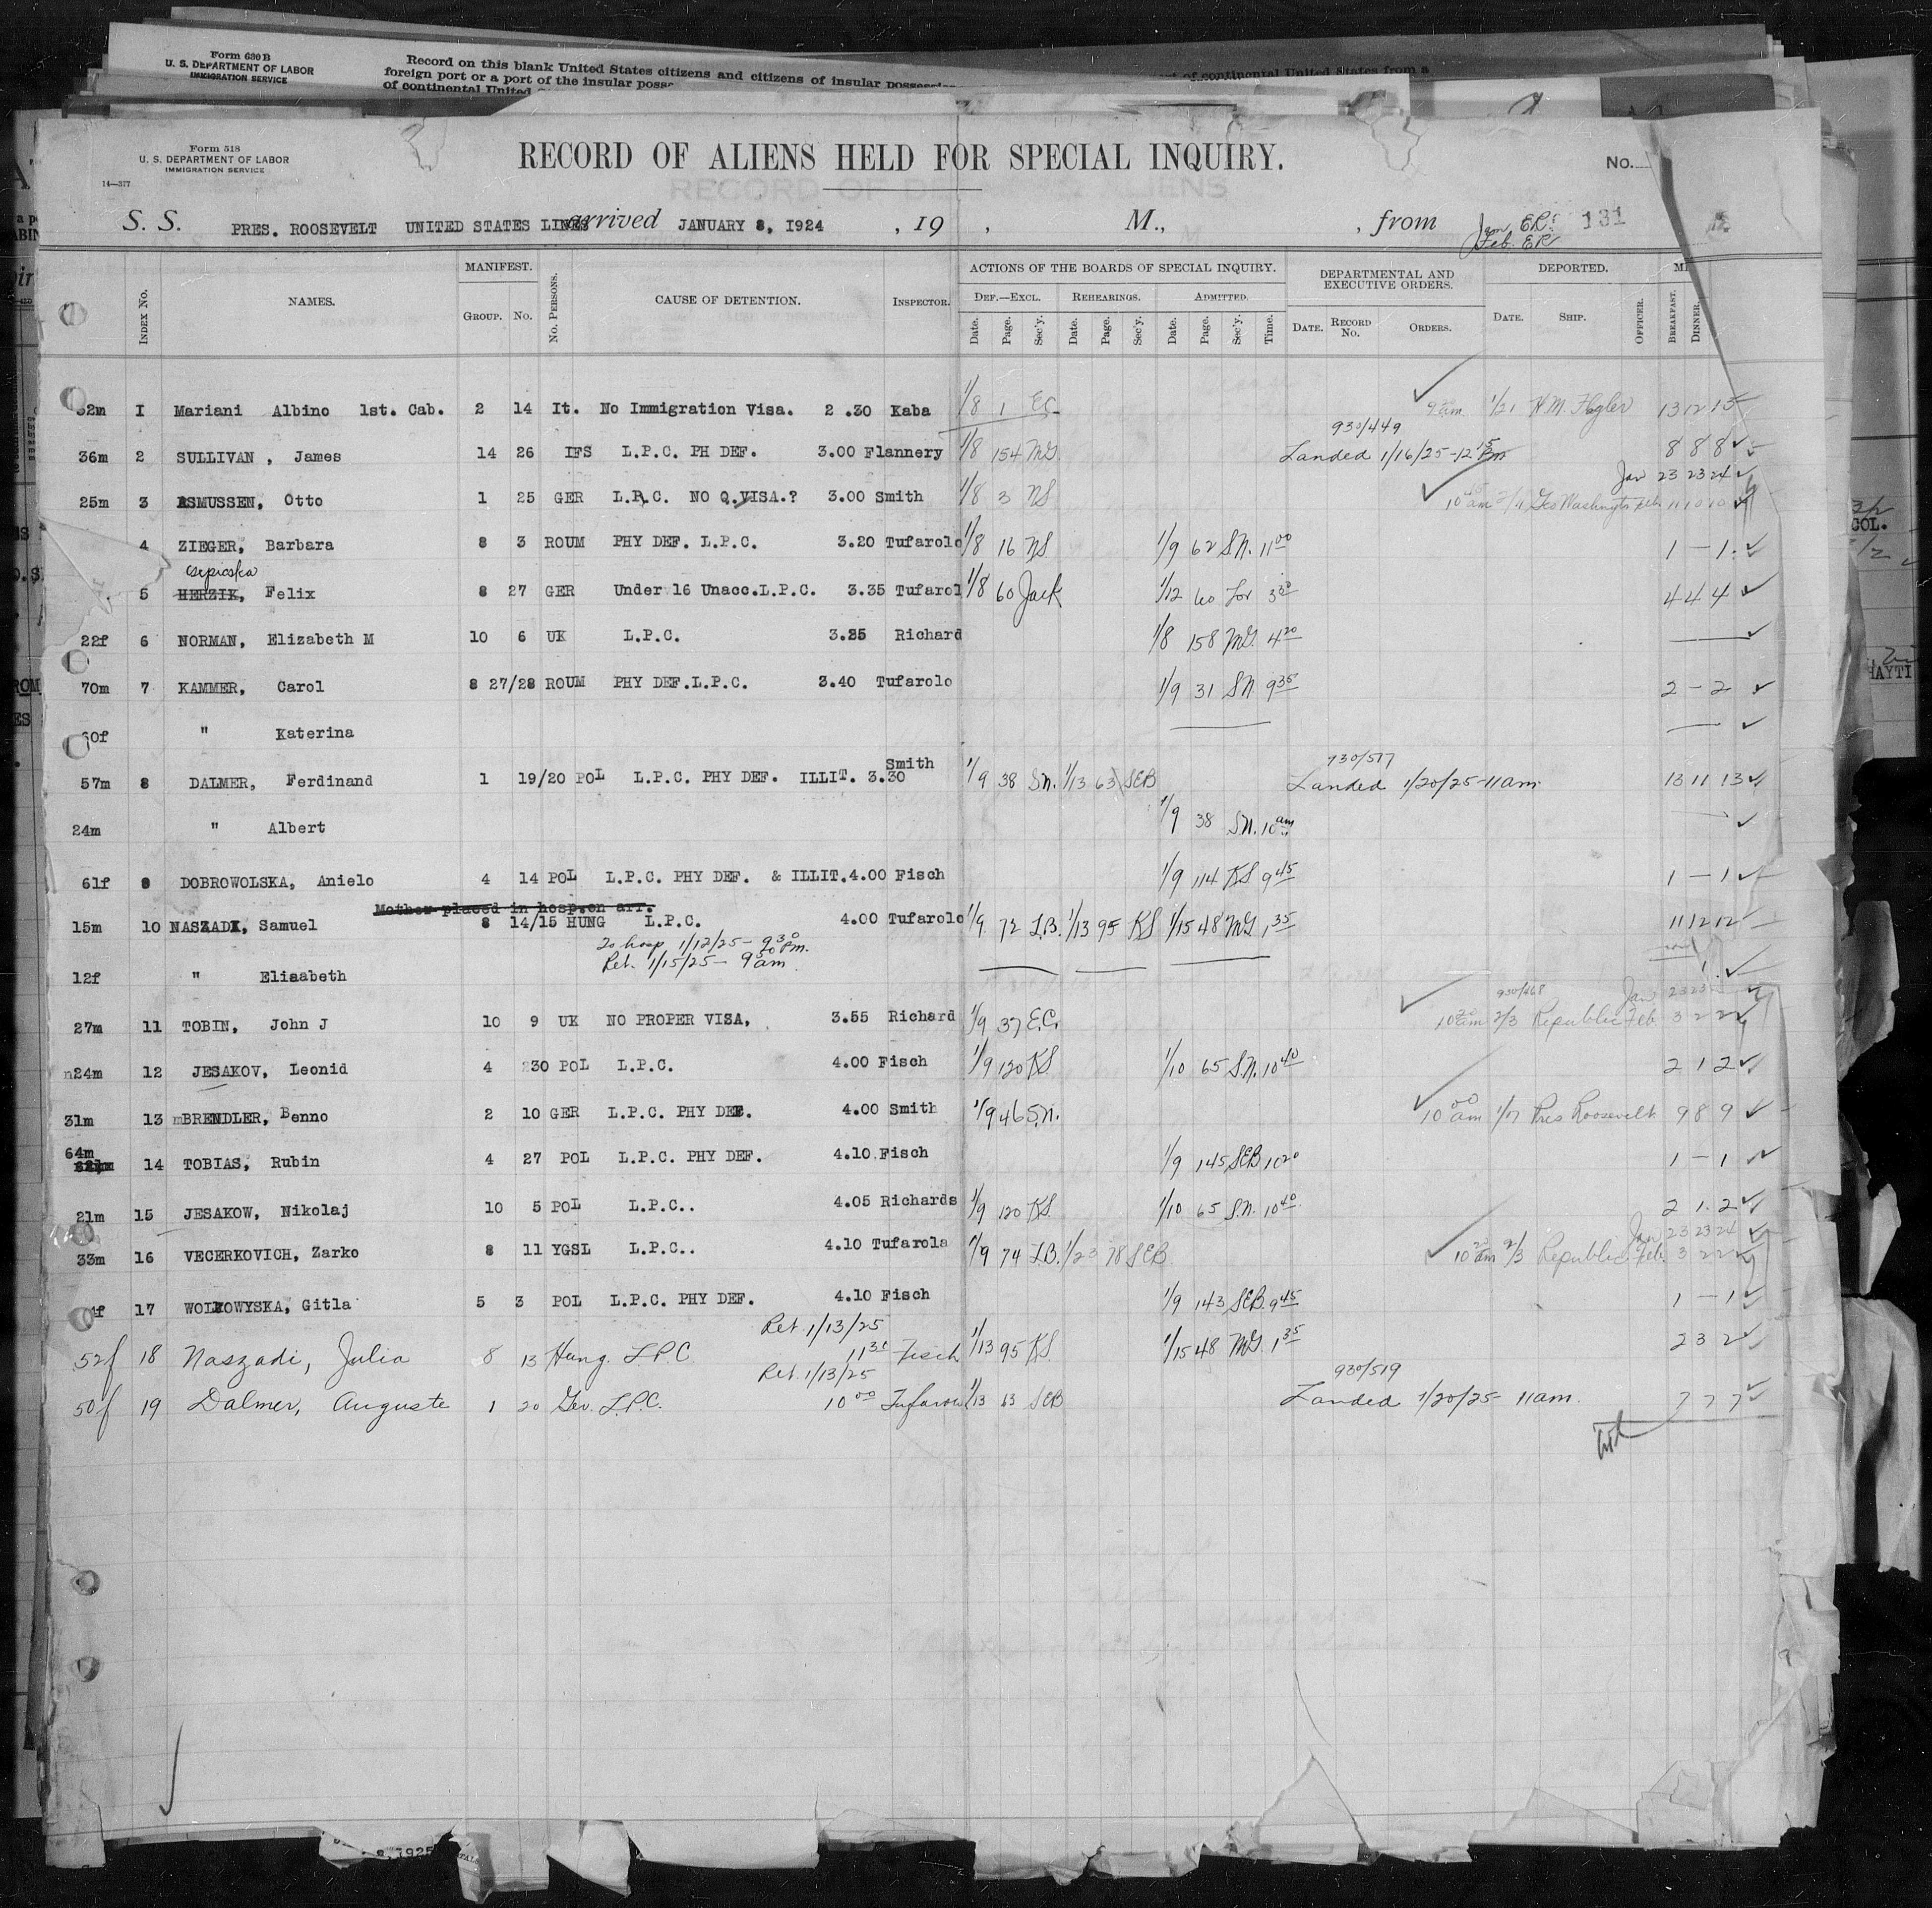 Form 630 B
U. S. DEPARTMENT OF LABOR
IMMIGRATION SERVICE
Record on this blank United States citizens and citizens of insular
of continental United States from a
foreign port or a port of the insular
of continental United
Form 518
U. S. DEPARTMENT OF LABOR
IMMIGRATION SERVICE
14—377
RECORD OF ALIENS HELD FOR SPECIAL INQUIRY.
No.
S. S. PRES. ROOSEVELT UNITED STATES LINES arrived JANUARY 8, 1924 , 19 , M., , from Jan. ER. 131
Feb. ER
INDEX No. NAMES. MANIFEST. GROUP. No. No. PERSONS. CAUSE OF DETENTION. INSPECTOR. ACTIONS OF THE BOARDS OF SPECIAL INQUIRY. DEF.—EXCL. Date. Page. Sec'y. REHEARINGS. Date. Page. Sec'y. ADMITTED. Date. Page. Sec'y. Time. DEPARTMENTAL AND EXECUTIVE ORDERS. DATE. RECORD No. ORDERS. DEPORTED. DATE. SHIP. OFFICER. BREAKFAST. DINNER.
32m I Mariani Albino 1st. Cab. 2 14 It. No Immigration Visa. 2 .30 Kaba 1/8 1 EC 9am 1/21 H.M. Flagler 13 12 15
930/449
36m 2 SULLIVAN , James 14 26 IFS L.P.C. PH DEF. 3.00 Flannery 1/8 154 MG Landed 1/16/25-12 15 Pm 8 8 8
Jan 23 23 24
25m 3 ASMUSSEN, Otto 1 25 GER L.P.C. NO Q.VISA.? 3.00 Smith 1/8 3 NS 10 am Geo Washington Feb. 11 10 10
4 ZIEGER, Barbara 8 3 ROUM PHY DEF. L.P.C. 3.20 Tufarolo 1/8 16 NS 1/9 62 S.N. 11 00 1 — 1
5 HERZIK, Felix 8 27 GER Under 16 Unacc.L.P.C. 3.35 Tufarol 1/8 60 Jack 1/12 60 For 3 4 4 4
22f 6 NORMAN, Elizabeth M 10 6 UK L.P.C. 3.25 Richard 1/8 158 MG. 4 20
70m 7 KAMMER, Carol 8 27/28 ROUM PHY DEF.L.P.C. 3.40 Tufarolo 1/9 31 S.N. 9 35 2 — 2
60f " Katerina
930/517
57m 8 DALMER, Ferdinand 1 19/20 POL L.P.C. PHY DEF. ILLIT. 3.30 Smith 1/9 38 S.N. 1/13 63 SEB Landed 1/20/25-11am 13 11 13
24m " Albert 1/9 38 S.N. 10 am
61f 9 DOBROWOLSKA, Anielo 4 14 POL L.P.C. PHY DEF. & ILLIT.4.00 Fisch 1/9 114 KS 9 45 1 — 1
Mother placed in hosp.on arr.
15m 10 NASZADI, Samuel 8 14/15 HUNG L.P.C. 4.00 Tufarolo 1/9 72 I.B. 1/13 95 KS 1/15 48 MG 1 35 11 12 12
To hosp 1/12/25 - 9 30 Pm.
Ret. 1/15/25 - 9 am
12f " Elisabeth 1
930/468 Jan 23 23
27m 11 TOBIN, John J 10 9 UK NO PROPER VISA, 3.55 Richard 1/9 37 E.C. 10 am 2/3 Republic Feb 3 2 2
24m 12 JESAKOV, Leonid 4 230 POL L.P.C. 4.00 Fisch 1/9 120 KS 1/10 65 S.N. 10 40 2 1 2
31m 13 BRENDLER, Benno 2 10 GER L.P.C. PHY DEF. 4.00 Smith 1/9 46 S.N. 10 00 am 1/17 Pres Roosevelt 9 8 9
64m 14 TOBIAS, Rubin 4 27 POL L.P.C. PHY DEF. 4.10 Fisch 1/9 145 SEB 10 20 1 — 1
21m 15 JESAKOW, Nikolaj 10 5 POL L.P.C.. 4.05 Richards 1/9 120 KS. 1/10 65 S.N. 10 40 2 1 2
Jan 23 23 24
33m 16 VECERKOVICH, Zarko 8 11 YGSL L.P.C.. 4.10 Tufarola 1/9 74 I.B. 1/23 78 SEB 10 am 2/3 Republic Feb. 3 2 2
17 WOLKOWYSKA, Gitla 5 3 POL L.P.C. PHY DEF. 4.10 Fisch 1/9 143 SEB. 9 45 1 — 1
Ret 1/13/25
52f 18 Naszadi, Julia 8 13 Hung. L.P.C 11 30 Fisch 1/13 95 KS 1/15 48 MG. 1 35 2 3 2
Ret. 1/13/25 930/519
50f 19 Dalmer, Auguste 1 20 Ger. L.P.C. 10 00 Tufarolo 1/13 63 SEB Landed 1/20/25- 11am. 7 7 7
COL.
HAYTI
1925